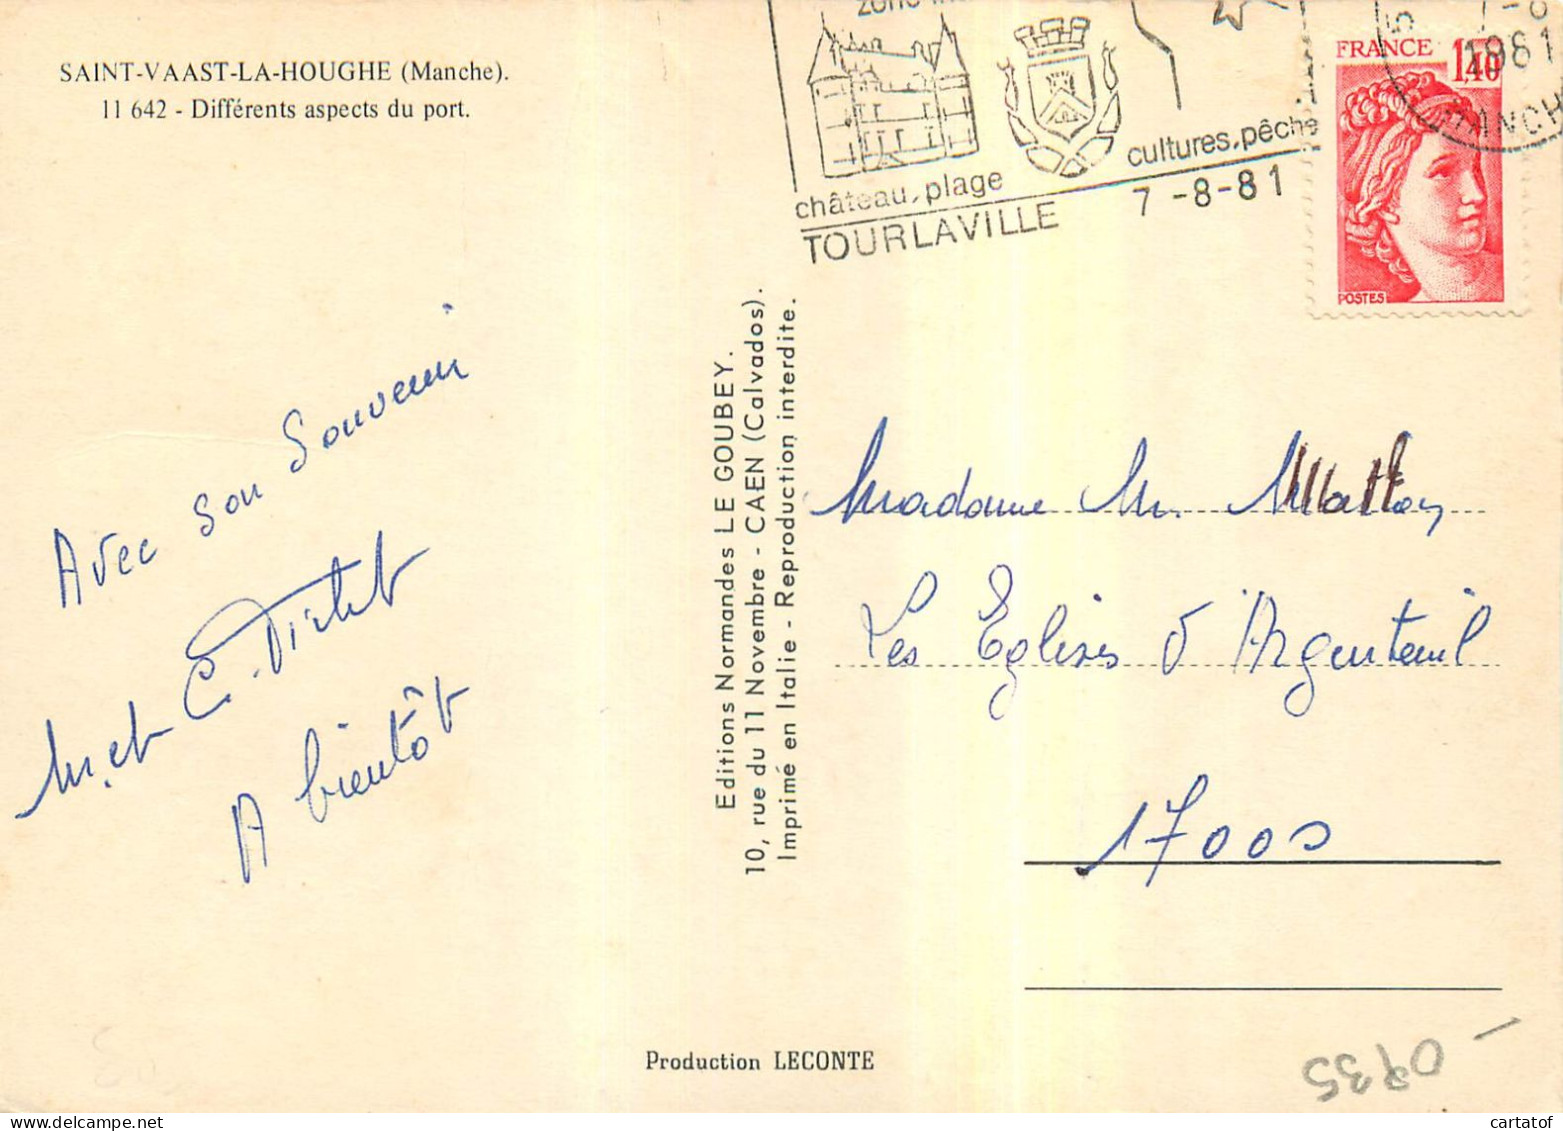 SAINT-VAAST-LA-HOUGHE (Manche).
11 642 - Différents aspects du port.
château, plage
cultures, pêche
TOURLAVILLE
7 -8-81
FRANCE 1,40
POSTES
1981
MANCH
Avec son Souvenir
A bientôt
Editions Normandes LE GOUBEY.
10, rue du 11 Novembre - CAEN (Calvados).
Imprimé en Italie - Reproduction interdite.
Madame M.
Les Eglises d'Argenteuil
17000
Production LECONTE
0935
cartatof